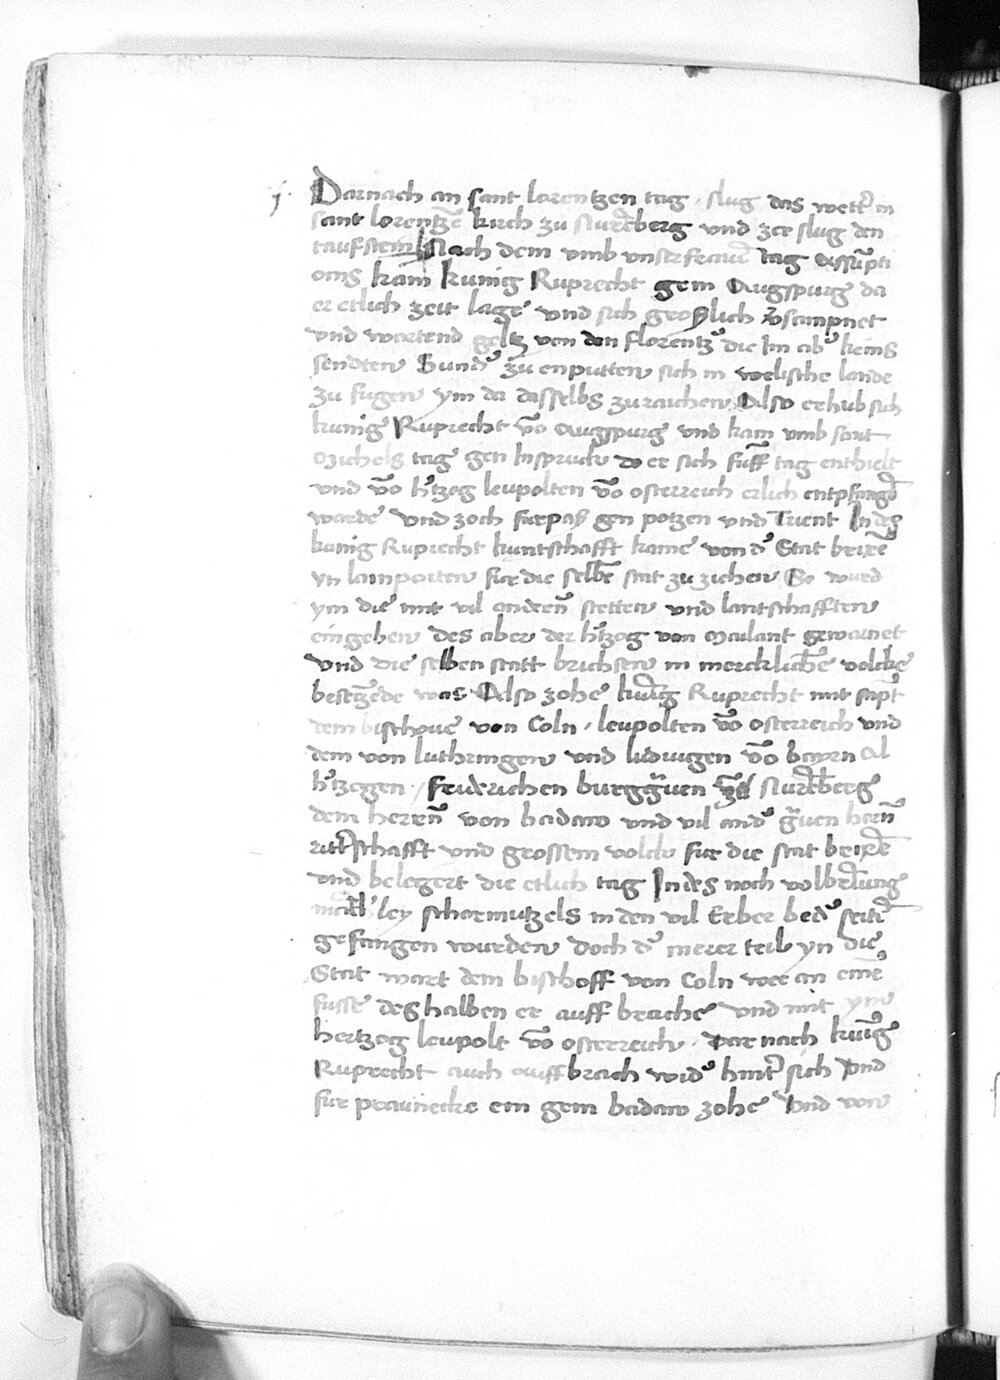 j. Darnach an sant lorentzen tag · slug das wett' in
sant lorentzē kirch zu Nurēberg vnd zee slug den
taufstein Nach dem vmb vnser frawē tag Assūpti
onis kam kunig Ruprecht gein Augspurg da
er etlich zeit lage vnd sich groslich v'sampnet
vnd wartend geltz von den florentz' die Im ab' keins
sendten Sund' zu enputten sich in welische lande
zu fugen ym da dasselbs zuraichen Also erhub sich
kunig Ruprecht vō Augspurg vnd kam vmb sant
Michels tag gen Inspruck do er sich funff tag enthielt
vnd vō h'tzog leupolten vō osterreich erlich entpfangē
warde Vnd zoch furpas gen potzen vnd Trient In des
kunig Ruprecht kuntschafft kame von d' Stat brixē
yn lamparten fur die selbē stat zu ziehen So wurd
ym die mit vil anderen stetten vnd lantschafften
eingeben des aber der h'tzog von Mailant gewarnet
vnd die selben statt brichsen in mercklichē volcke
besetzēde was Also zohe kunig Ruprecht mit sāpt
dem bischoue von Coln · leupolten vō osterreich vnd
dem von luthringen vnd ludwigen vō bayrn Al
h'tzogen · friderichen burggrauen zu Nurēberg
dem herrn von badaw vnd vil and' grauen hern
ritt'schafft vnd grossem volck fur die stat brixē
vnd belegert die etlich tag In des noch volbrēgung
man'ley scharmutzels in den vil Erber bed' seitē
gefangen wurden Doch d' merer teil yn die
Stat wart dem bischoff von Coln wee an einē
fusse deshalben er auff brache vnd mit yme
hertzog leupolt vō osterreich · Darnach kunig
Ruprecht auch auffbrach wid' hint' sich Vnd
fur praunecke ein gein badaw zohe Vnd von